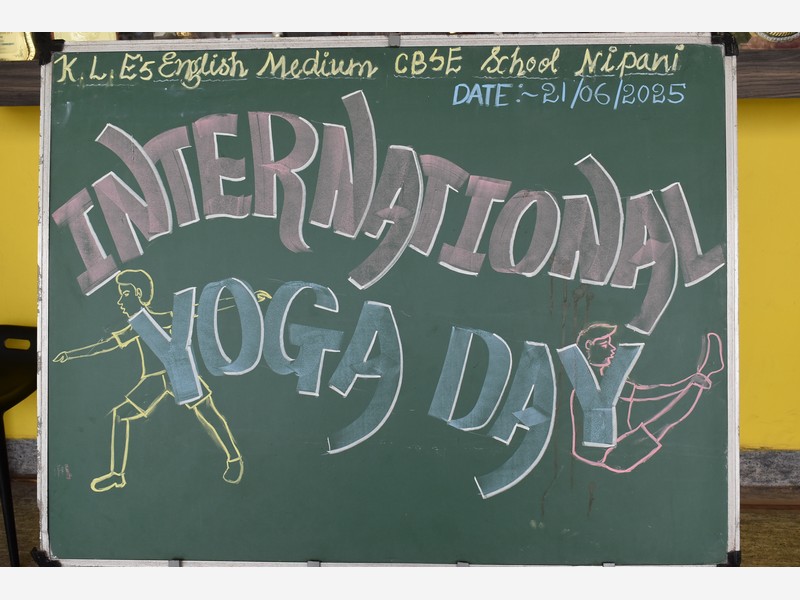 K.L.E's English Medium CBSE School Nipani
DATE:~21/06/2025
INTERNATIONAL
YOGA DAY